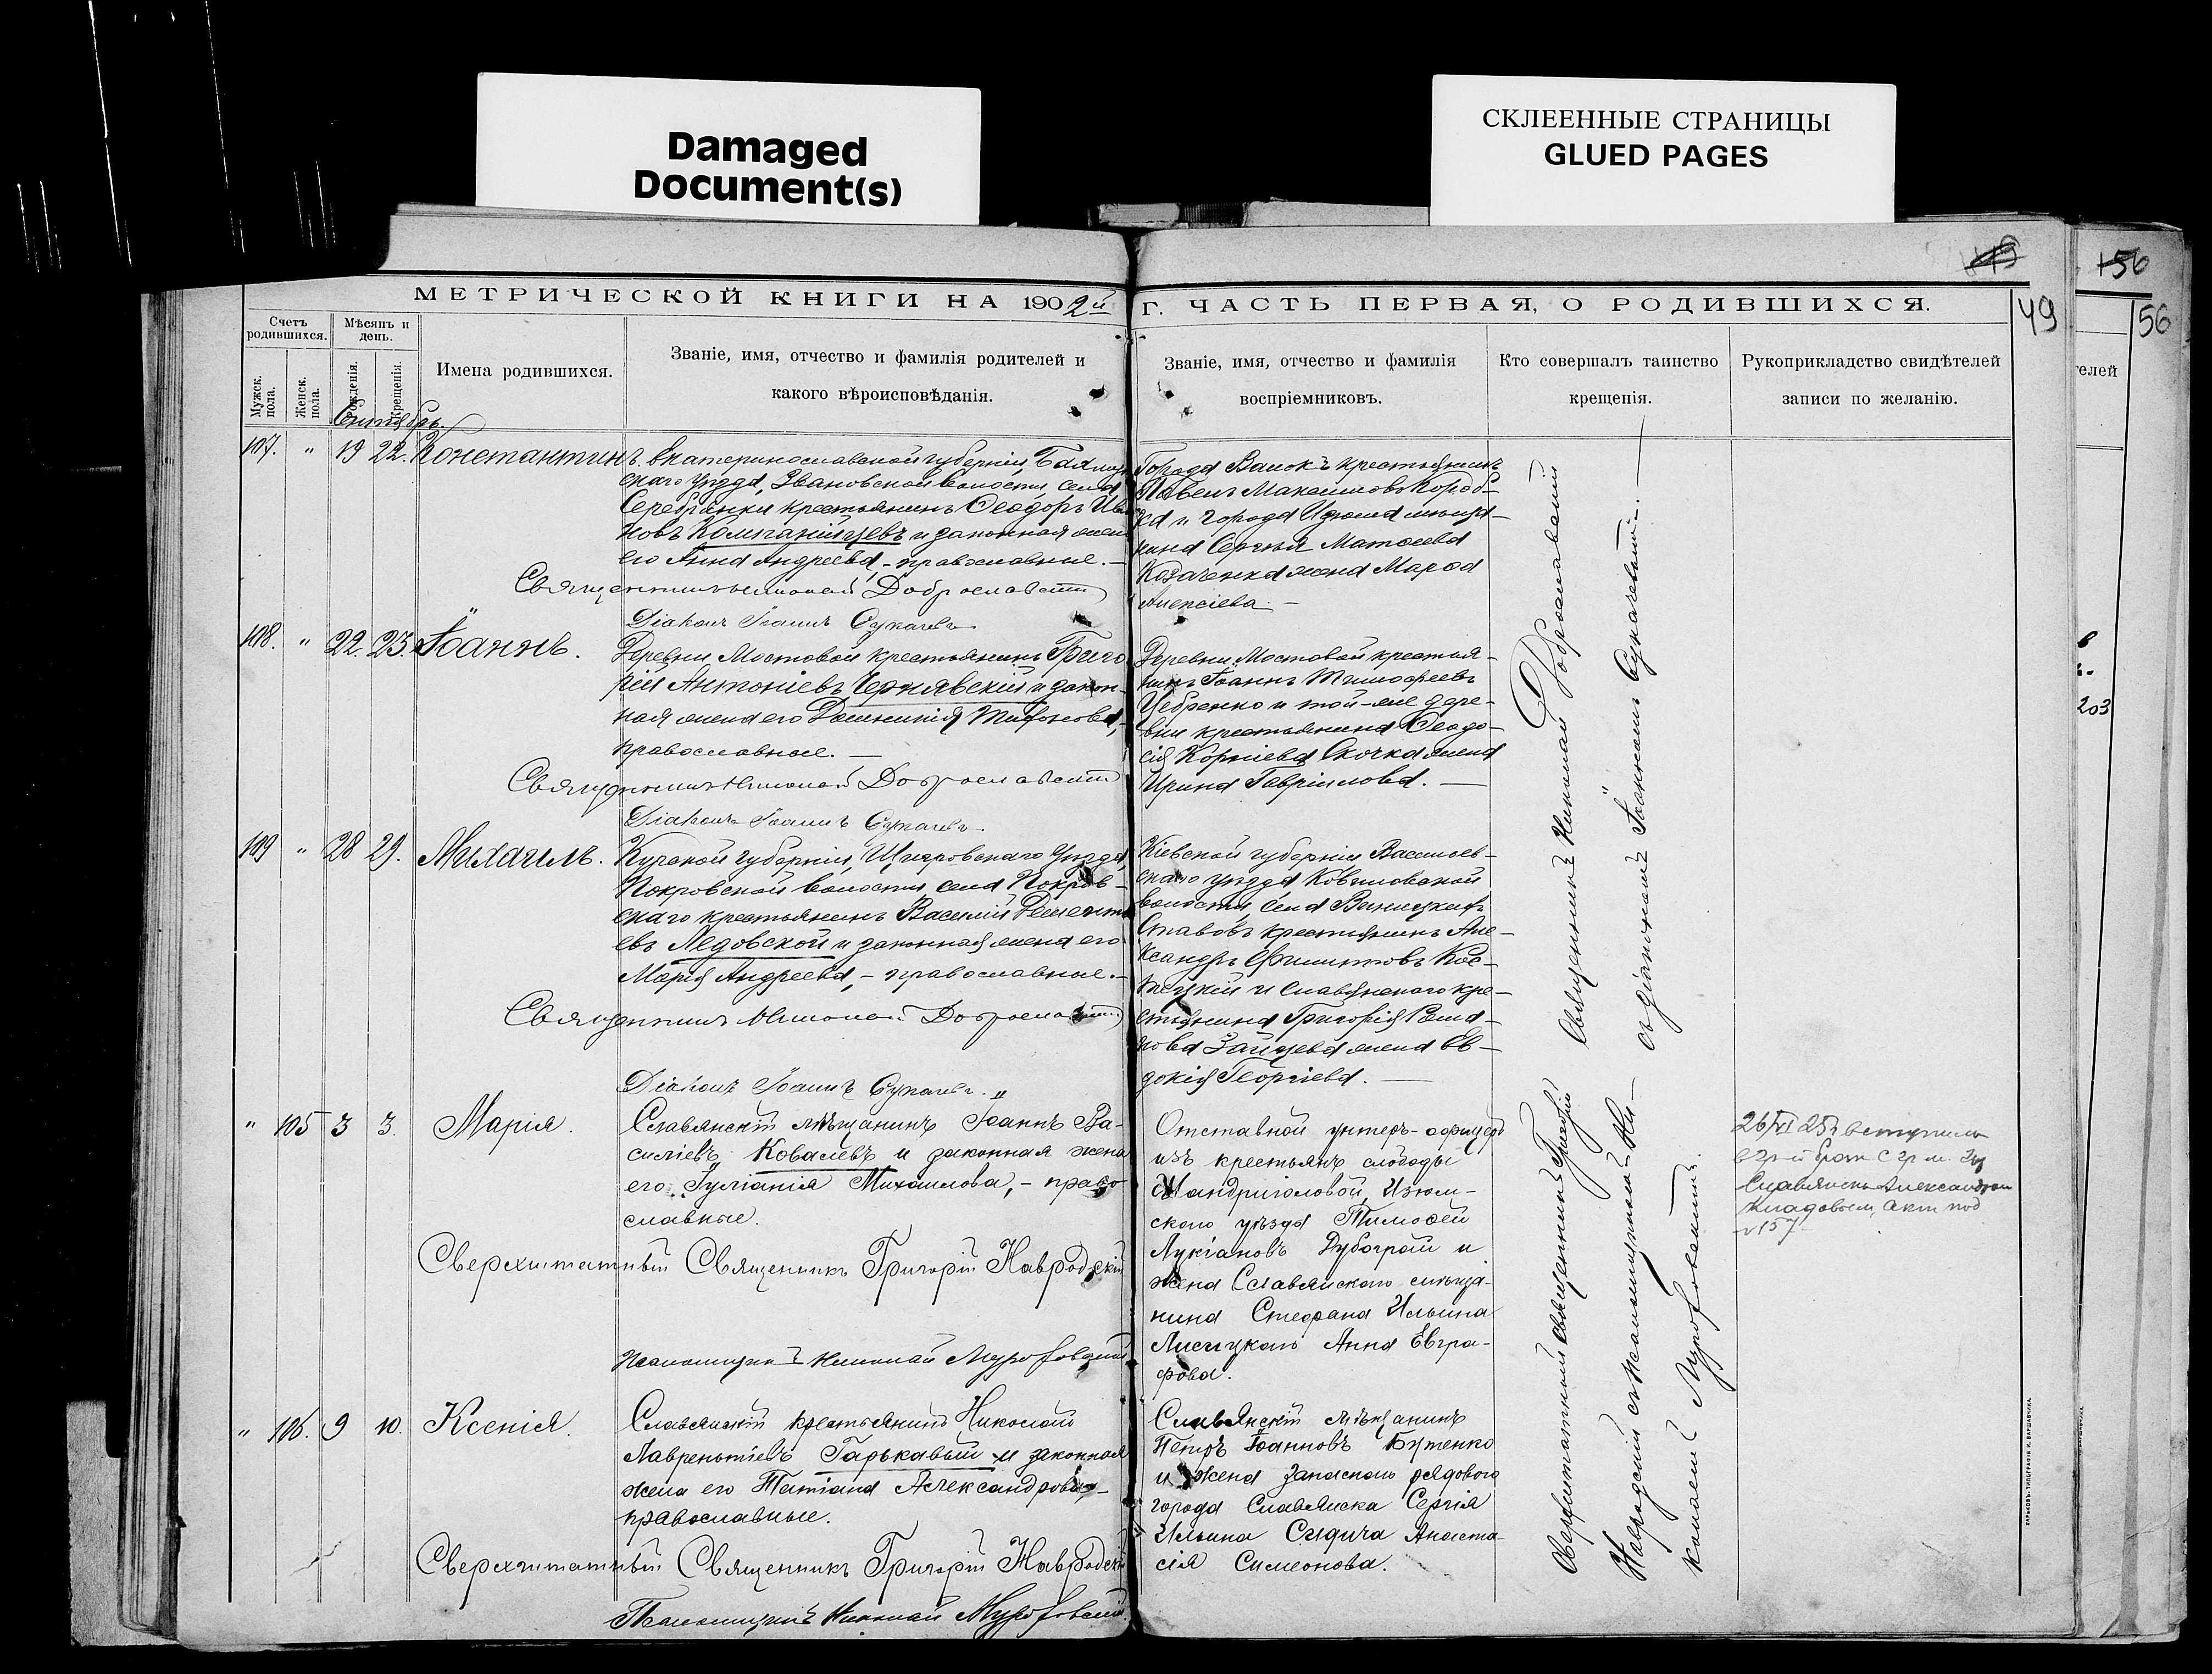 Damaged
Document(s)
СКЛЕЕННЫЕ СТРАНИЦЫ
GLUED PAGES
156
МЕТРИЧЕСКОЙ КНИГИ НА 1902й Г. ЧАСТЬ ПЕРВАЯ, О РОДИВШИХСЯ.
49
56
Счетъ родившихся.
Мѣсяцъ и день.
Мужск. пола.
Женск. пола.
Рожденія.
Крещенія.
Имена родившихся.
Званіе, имя, отчество и фамилія родителей и
какого вѣроисповѣданія.
Званіе, имя, отчество и фамилія
воспріемниковъ.
Кто совершалъ таинство
крещенія.
Рукоприкладство свидѣтелей
записи по желанію.
телей
Сентябрь.
107. " 19 22. Константинъ.
Екатеринославской губерніи, Бахмут
скаго уѣзда, Звановской волости, села
Серебрянки крестьянинъ Ѳеодоръ Ива
новъ Компанійцевъ и законная жена
его Анна Андреева, - православные. -
Священникъ Николай Доброславскій
Діаконъ Іоаннъ Сукачевъ
Города Валокъ крестьянинъ
Павелъ Максимовъ Короб-
ка и города Изюма мѣща-
нина Сергѣя Матѳеева
Козаченка жена Марѳа
Алексіева. -
108. " 22. 23. Іоаннъ.
Деревни Мостовой крестьянинъ Григо
рій Антоніевъ Чернявскій и закон-
ная жена его Домникія Тиѳонова,
православные. -
Священникъ Николай Доброславскій
Діаконъ Іоаннъ Сукачевъ.
Деревни Мостовой крестья-
нинъ Іоаннъ Тимоѳеевъ
Цебренко и той-же дере-
вни крестьянина Ѳеодо-
сія Корніева Скочка жена
Ирина Гавріилова. -
203
109 " 28 29. Михаилъ.
Курской губерніи, Щигровскаго уѣзда,
Покровской волости, села Покров-
скаго крестьянинъ Василій Дементі
евъ Ледовской и законная жена его
Марія Андреева, - православные. -
Священникъ Николай Доброславскій
Діаконъ Іоаннъ Сукачевъ.
Кіевской губерніи Васильев-
скаго уѣзда
волости, села
Ставовъ крестьянинъ Але-
ксандръ Филипповъ Кос-
и Славянскаго кре-
стьянина Григорія
нова Зайцева жена Ев-
докія Георгіева. -
Священникъ Николай Доброславскій
съ діакономъ Іоанномъ Сукачевымъ. -
" 105 3 3. Марія.
Славянскій мѣщанинъ Іоаннъ Ва-
силіевъ Ковалевъ и законная жена
его Іуліанія Михаилова, - право
славные.
Сверхштатный Священникъ Григорій Навродскій
Псаломщикъ Николай
Отставной унтеръ-офицеръ
изъ крестьянъ слободы
Шандриголовой, Изюм-
скаго уѣзда Тимоѳей
Лукіановъ Дубограй и
жена Славянскаго мѣща-
нина Стефана Ильина
Лисицкаго Анна Евгра-
фова.
26/XI 25 г. вступила
Славянска Александром
Кладовым, акт под
№ 157
" 106. 9 10. Ксенія.
Славянскій крестьянинъ Николай
Лаврентіевъ Гарькавый и законная
жена его Татіана Александрова, -
православные.
Сверхштатный Священникъ Григорій Навродскій
Псаломщикъ Николай
Славянскій мѣщанинъ
Петръ Іоанновъ Бутенко
и жена запаснаго рядоваго
города Славянска Сергія
Ильина Сидича Анаста-
сія Симеонова.
Сверхштатный священникъ Григорій
Навродскій съ псаломщикомъ Ни-
колаемъ